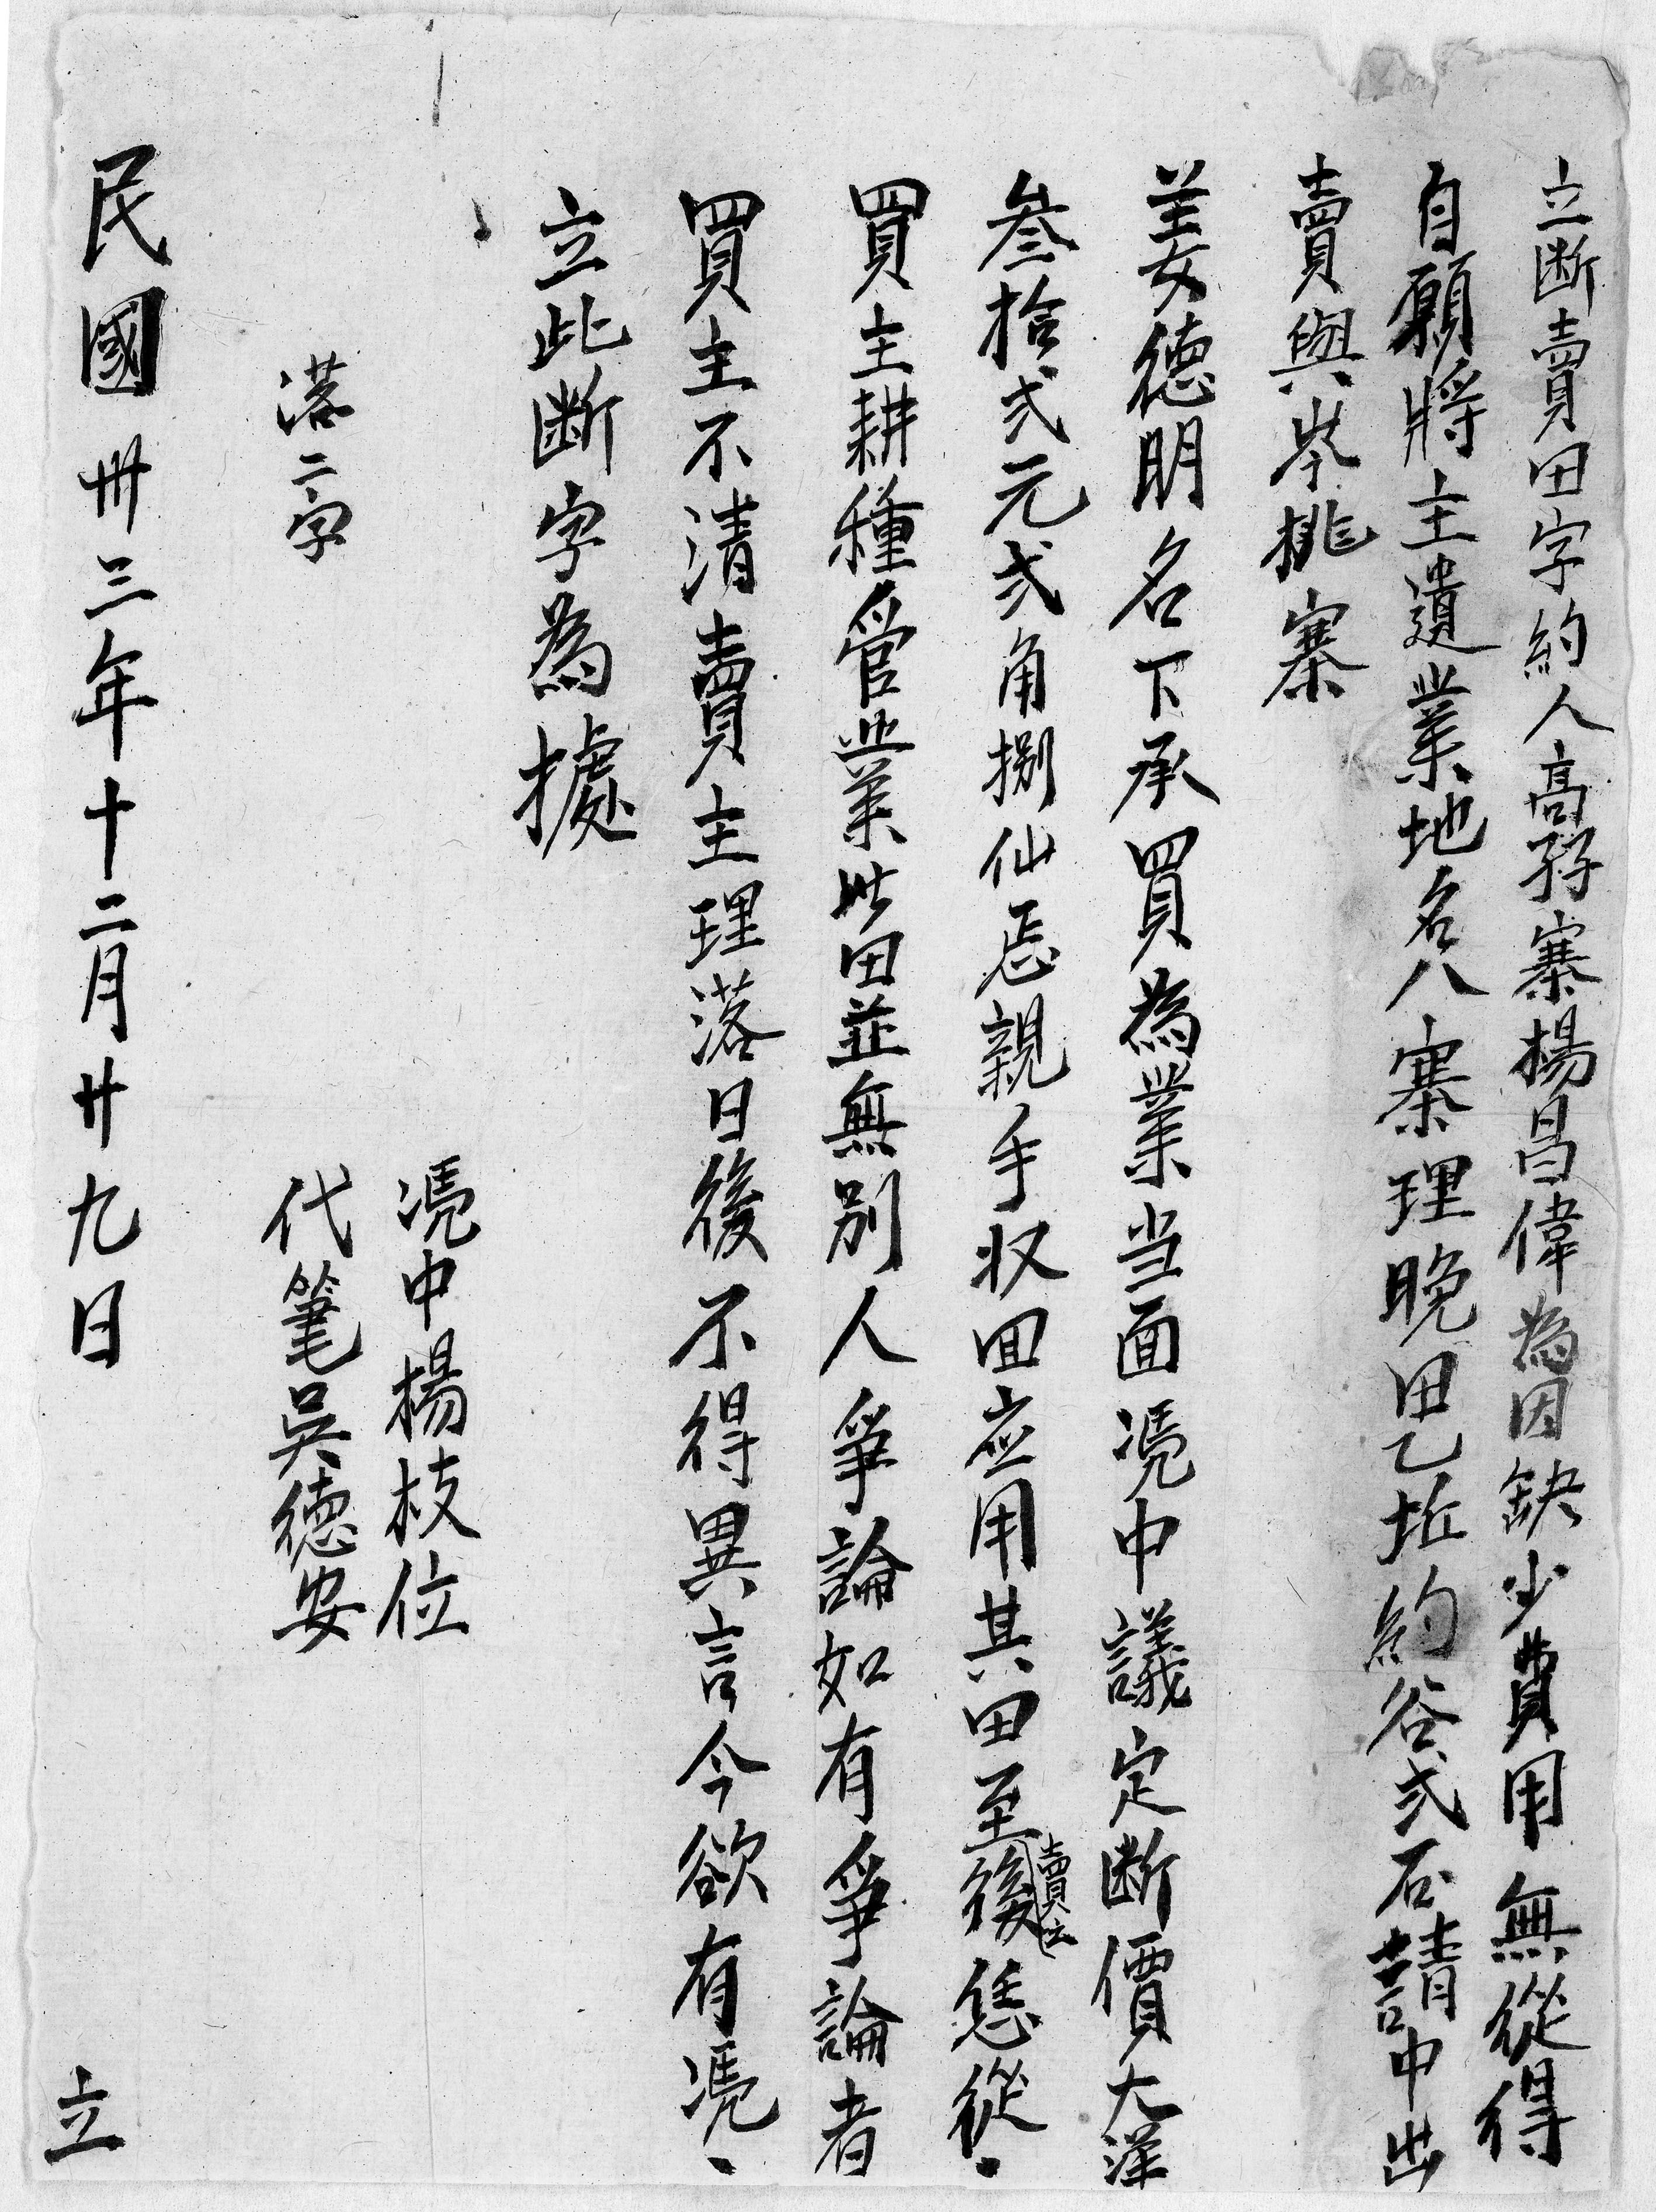 立断賣田字約人髙孖寨楊昌偉為因缺少費用無從得
自願將主遺業地名八寨理晚田乙坵約谷弍石請中出
賣與岑桃寨
姜德明名下承買為業当面凴中議定断價大洋
叁拾弍元弍角捌仙忝親手収回应用其田至後賣主恁從
買主耕種管業此田並無别人爭論如有爭論者
買主不清賣主理落日後不得異言今欲有凴
立此断字為據
凴中楊枝位
代筆吳德安
落二字
民國卅三年十二月廿九日立